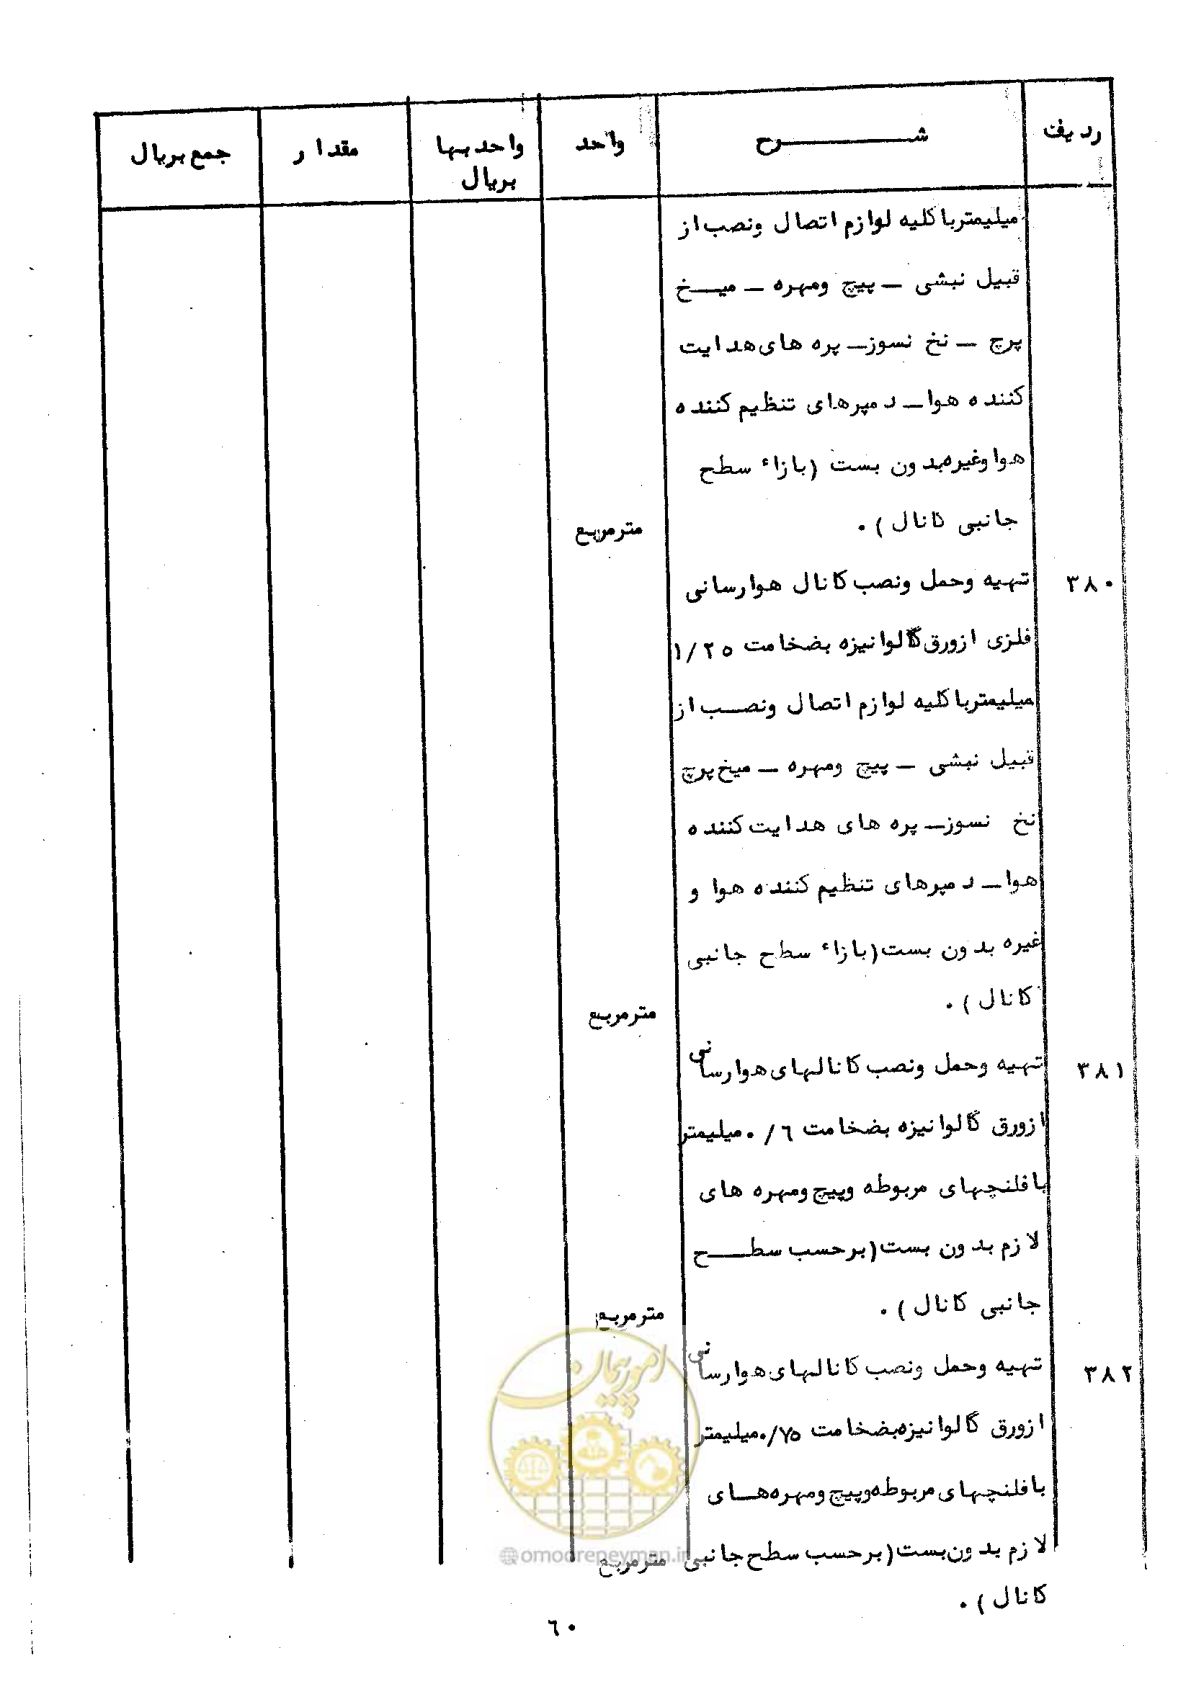 ردیف شــــــرح واحد واحدبها بریال مقدار جمع بریال
میلیمتر با کلیه لوازم اتصال ونصب از
قبیل نبشی ــ پیچ ومهره ــ میــخ
پرچ ــ نخ نسوز ــ پره های هدایت
کننده هوا ــ دمپرهای تنظیم کننده
هوا وغیره بدون بست (بازاء سطح
جانبی کانال). مترمربع
۳۸۰ تهیه وحمل ونصب کانال هوارسانی
فلزی ازورق گالوانیزه بضخامت ۱/۲۵
میلیمتر با کلیه لوازم اتصال ونصـب از
قبیل نبشی ــ پیچ ومهره ــ میخ پرچ
نخ نسوز ــ پره های هدایت کننده
هوا ــ دمپرهای تنظیم کننده هوا و
غیره بدون بست (بازاء سطح جانبی
کانال). مترمربع
۳۸۱ تهیه وحمل ونصب کانالهای هوارسانی
ازورق گالوانیزه بضخامت ۰/۶ میلیمتر
با فلنچهای مربوطه وپیچ ومهره های
لازم بدون بست (برحسب سطــح
جانبی کانال). مترمربع
۳۸۲ تهیه وحمل ونصب کانالهای هوارسانی
ازورق گالوانیزه بضخامت ۰/۷۵ میلیمتر
با فلنچهای مربوطه وپیچ ومهره هــای
لازم بدون بست (برحسب سطح جانبی مترمربع
کانال).
۶۰
امور پیمان
@omoorepeyman.ir